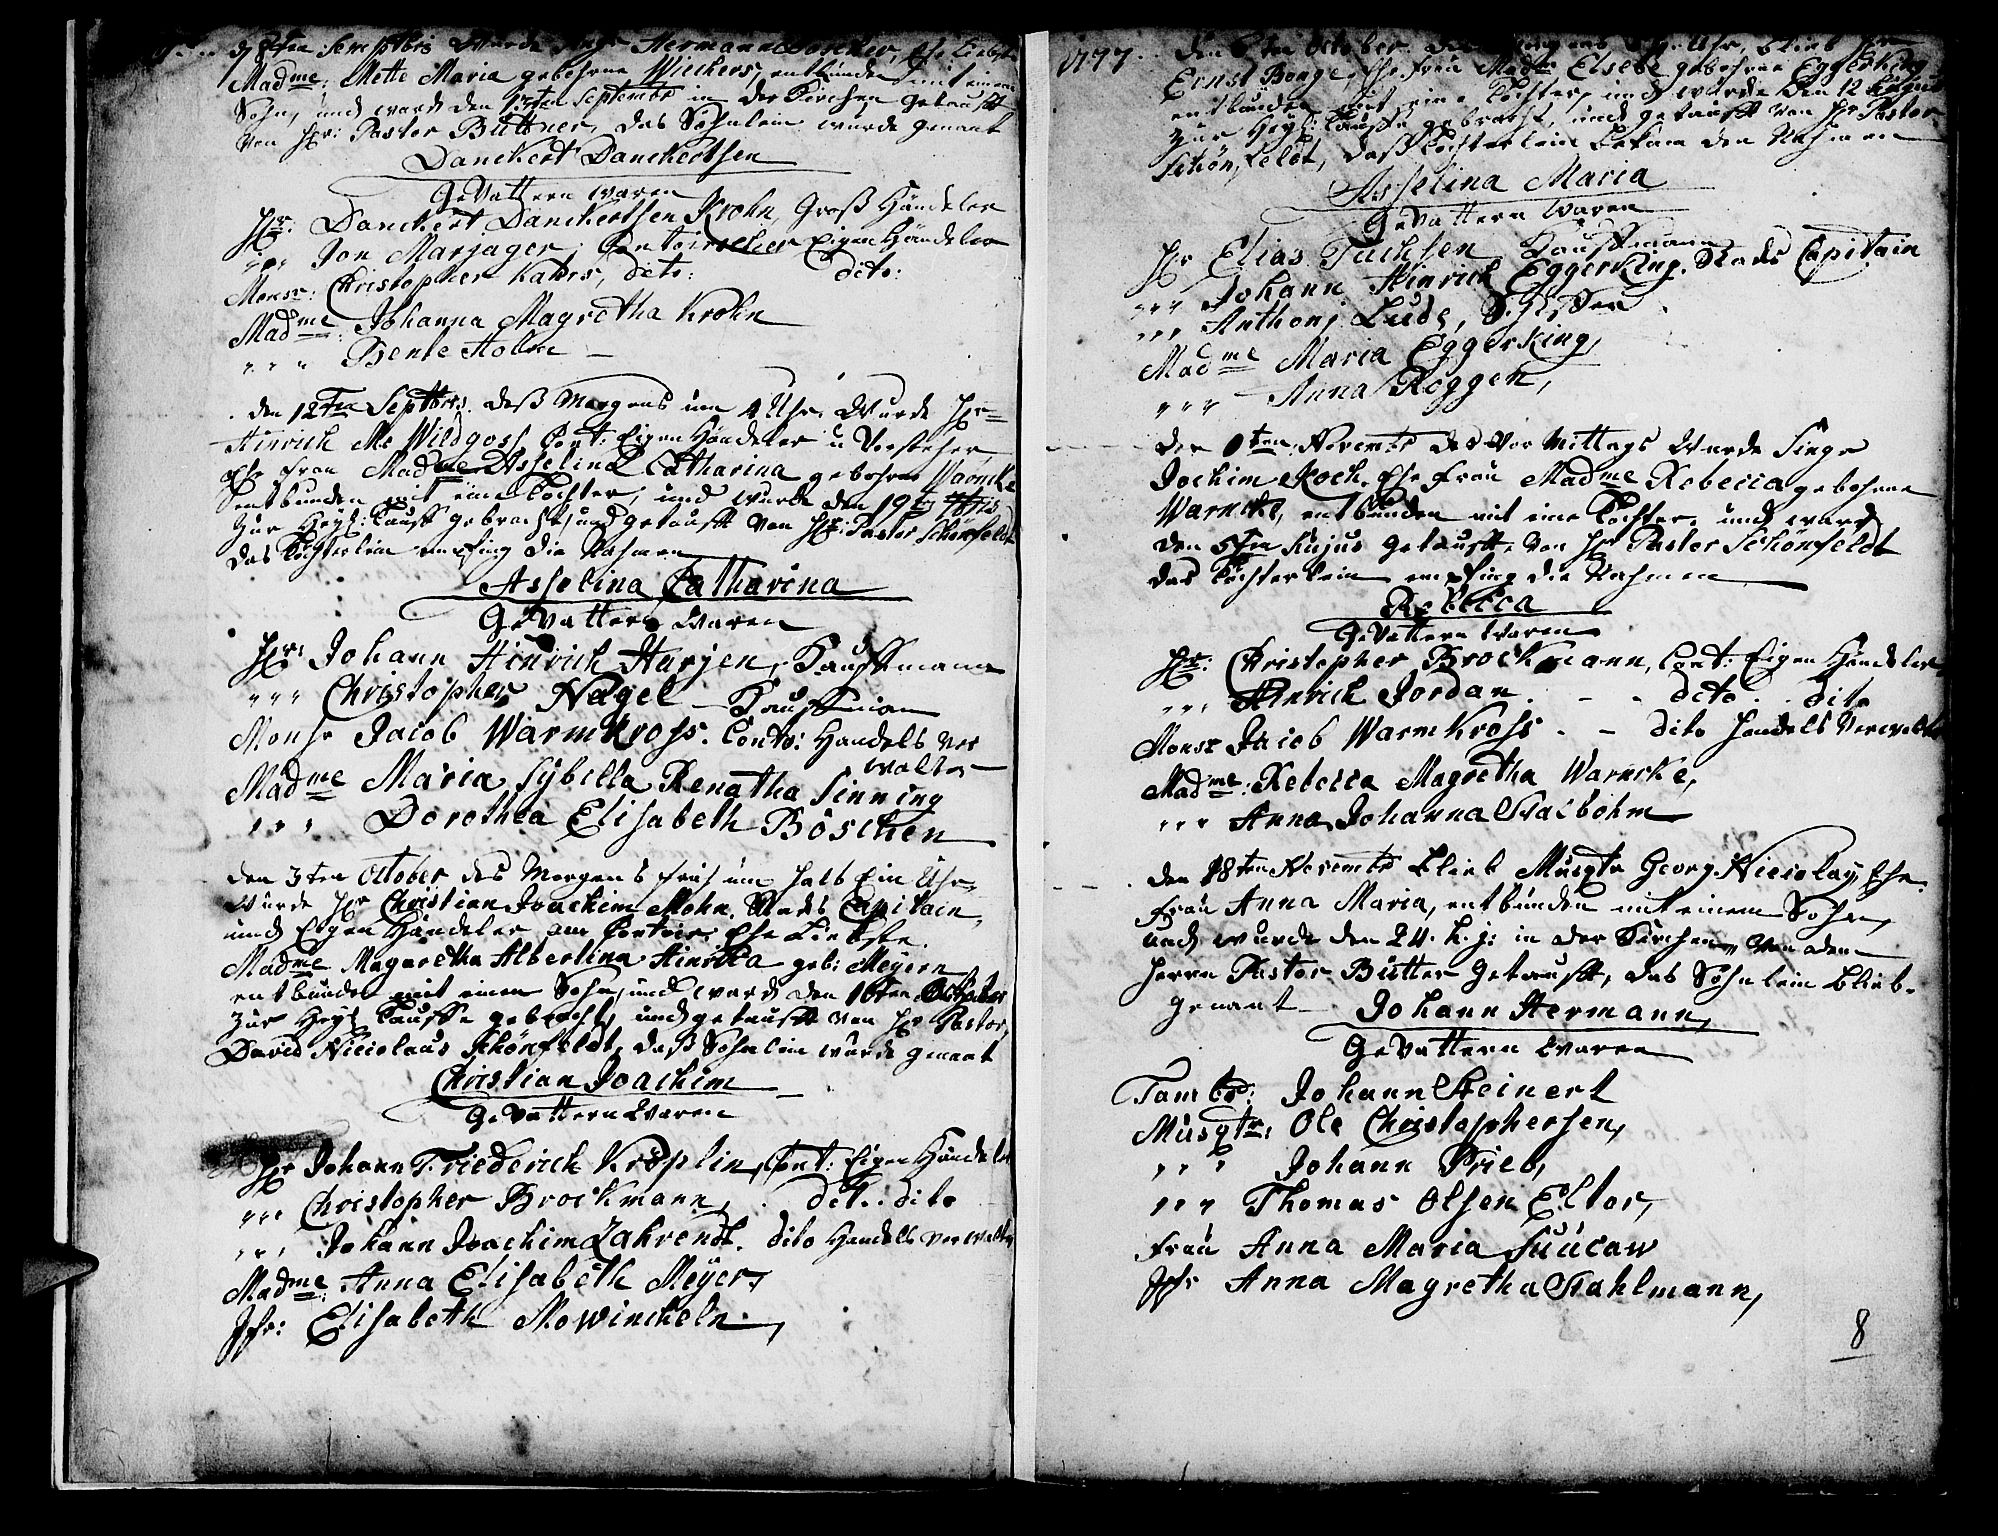 Septbris wurde Hermann Ehe Liebste
Madme: Mette Maria gebohrne Wiechers, entbunden mit einen
Sohn, und ward den Septembr in der Kirchen getaufft
von Hr: Pastor Büttner, das Söhnlein wurde genant
Danckert Danckertsen
Gevattern waren
Hr: Danckert Danckertsen Krohn, Groß Händeler
,,, Jon Marjager, Contoirscher Eigen Händeler
Monsr: Christopher Kahrs, dito: dito:
Madme: Johanna Magretha Krohn
,,, Bente Holm
den 12ten Septbris. deß Morgens um 4 Uhr. Wurde Hr
Hinrich Me Wildgoss Cont: Eigen Händeler u Vorsteher
Ehe Frau Madme Asselina Catharina gebohrne Warncke
entbunden mit eine Tochter, und wurde den 19 7bris
zur Heyl: Tauff gebracht, und getaufft von Hr: Pastor Schönfeldt
das Töchterlein empfing die Nahmen
Asselina Catharina
Gevattern waren
Hr: Johann Hinrich Harjen, Kauffmann
,,, Christopher Nagel Kauffman
Monsr Jacob Warmkross. Contr: Handels Ver
walter
Madme Maria Sybella Renatha Sinning
,,, Dorothea Elisabeth Böschen
den 3ten October des Morgens früh um halb Ein Uhr,
Wurde Hr Christian Joachim Mohn, Stads Capitain,
und Eigen Händeler am Contoir, Ehe Liebste.
Madme Magaretha Albertina Hinrica geb: Meyern
entbunden mit einen Sohn, und ward den 10ten October
zur Heyl Tauffe gebracht, und getaufft von Hr Pastor,
David Nicolaus Schönfeldt, daß Söhnlein wurde genant
Christian Joachim
Gevattern Waren
Hr Johann Friederich Kröplin, Cont: Eigen Händeler
,,, Christopher Brockmann, dit.. dito
,,, Johann Joachim Zahrendt. dito Handels verwalter
Madme: Anna Elisabeth Meyer,
Jfr: Elisabeth Mowinckeln,
1777. den 6ten October. Uhr, blieb Hr
Ernst Bonge, Ehe Frau Madme Elsebe gebohrne Eggerking
entbunden mit eine Tochter, und wurde den 12 hujus
zur Heyl: Tauffe gebracht, und getaufft von Hr Pastor.
Schönfeldt, daß Töchterlein bekam den Nahmen
Asselina Maria
Gevattern waren
Hr Elias Tuchsen Kauffmann
,,, Johann Hinrich Eggerking. Stads Capitain
,,, Anthonj Lude, Schiffer
Madme Maria Eggerking,
,,, Anna Roggen,
den ten Novembr des Vor Mittags Wurde Singr
Jochim Koch. Ehe Frau Madme Rebecca gebohrne
Warncke, entbunden mit eine Tochter. und ward
den 5ten hujus getaufft, von Hr Pastor Schönfeldt
das Töchterlein empfing die Nahmen
Rebecca
Gevattern waren
Hr: Christopher Brockmann, Cont: Eigen Händeler,
,,, Hinrich Jordan. - - dito. dito
Monsr Jacob Warmkross. - dito Handels Verwalter
Madme: Rebecca Magretha Warncke,
,,, Anna Johanna Kalbohm
den 18ten Novembr blieb Musqtr Georg Nicolay, Ehe.
Frau Anna Maria, entbunden mit einem Sohn,
und wurde den 24. h.j: in der Kirchen, von dem
Herrn Pastor Bütner getaufft, das Söhnlein blieb.
genant Johann Hermann,
Gevattern Waren
Tambr: Johann Steinert
Musqtr: Ole Christophersen,
,,, Johann Prieb,
,,, Thomas Olsen Eltor,
Frau Anna Maria Suucaw
Jfr Anna Magretha Stahlmann,
8